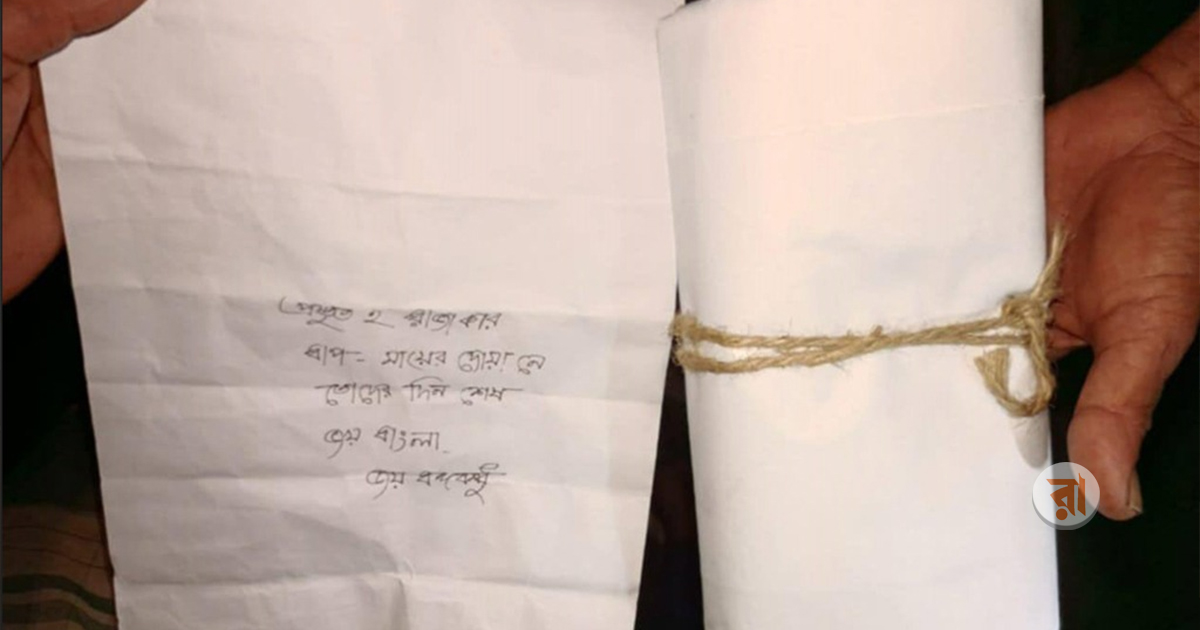 প্রস্তুত হ রাজাকার
বাপ - মায়ের দোয়া নে
তোদের দিন শেষ
জয় বাংলা.
জয় বঙ্গবন্ধু
রা